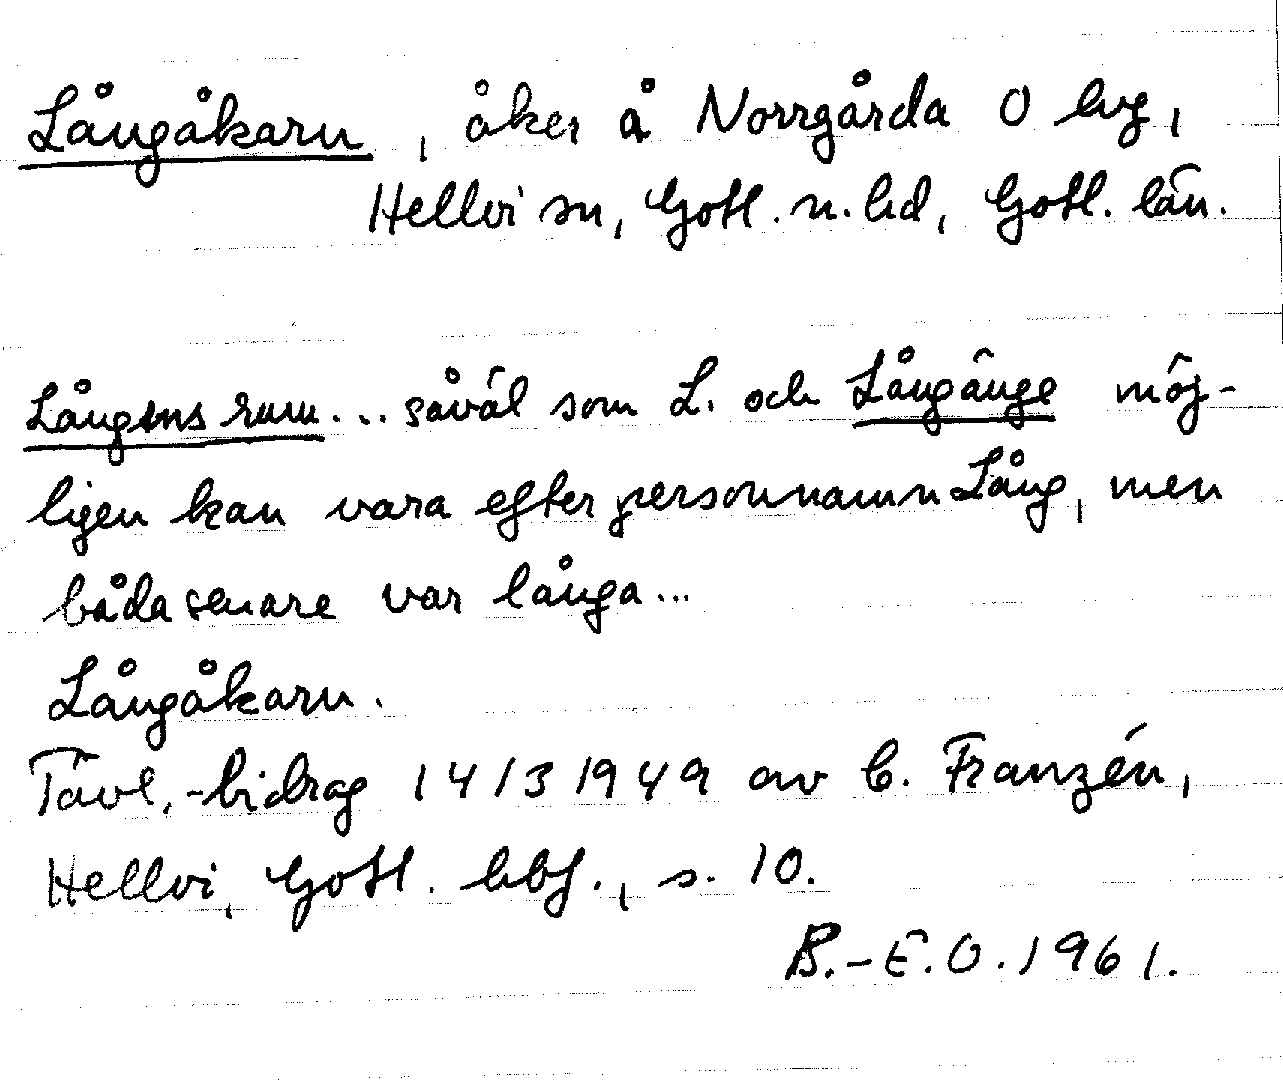 Långåkarn, åker å Norrgårda O by,
Hellvi sn, Gotl. n. hd, Gotl. län.
Långens rum... såväl som L. och Långänge möj-
ligen kan vara efter personnamn Lång, men
båda senare var långa...
Långåkarn.
Tävl.-bidrag 14/3 1949 av C. Franzén,
Hellvi, Gotl. hbf., s. 10.
B.-E.O. 1961.